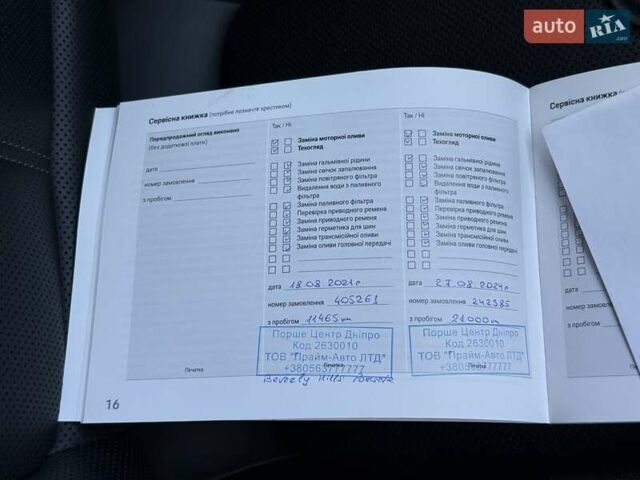 auto RIA.com
Сервісна книжка (потрібне позначте хрестиком)
Сервісна книжка
Передпродажний огляд виконано
(без додаткової плати)
дата
номер замовлення
з пробігом
Печатка
Так / Ні
Заміна моторної оливи
Техогляд
Заміна гальмівної рідини
Заміна свічок запалювання
Заміна повітряного фільтра
Видалення води з паливного
фільтра
Заміна паливного фільтра
Перевірка приводного ременя
Заміна приводного ременя
Заміна герметика для шин
Заміна трансмісійної оливи
Заміна оливи головної передачі
дата 18.08.2021г
номер замовлення 405261
з пробігом 11465
Порше Центр Дніпро
Код 2630010
ТОВ "Прайм-Авто ЛТД"
+380563777777
Печатка
Beverly Hills Porsche
Так / Ні
Заміна моторної оливи
Техогляд
Заміна гальмівної рідини
Заміна свічок запалювання
Заміна повітряного фільтра
Видалення води з паливного
фільтра
Заміна паливного фільтра
Перевірка приводного ременя
Заміна приводного ременя
Заміна герметика для шин
Заміна трансмісійної оливи
Заміна оливи головної передачі
дата 27.08.2024г
номер замовлення 242385
з пробігом 21000
Порше Центр Дніпро
Код 2630010
ТОВ "Прайм-Авто ЛТД"
+380563777777
Печатка
16